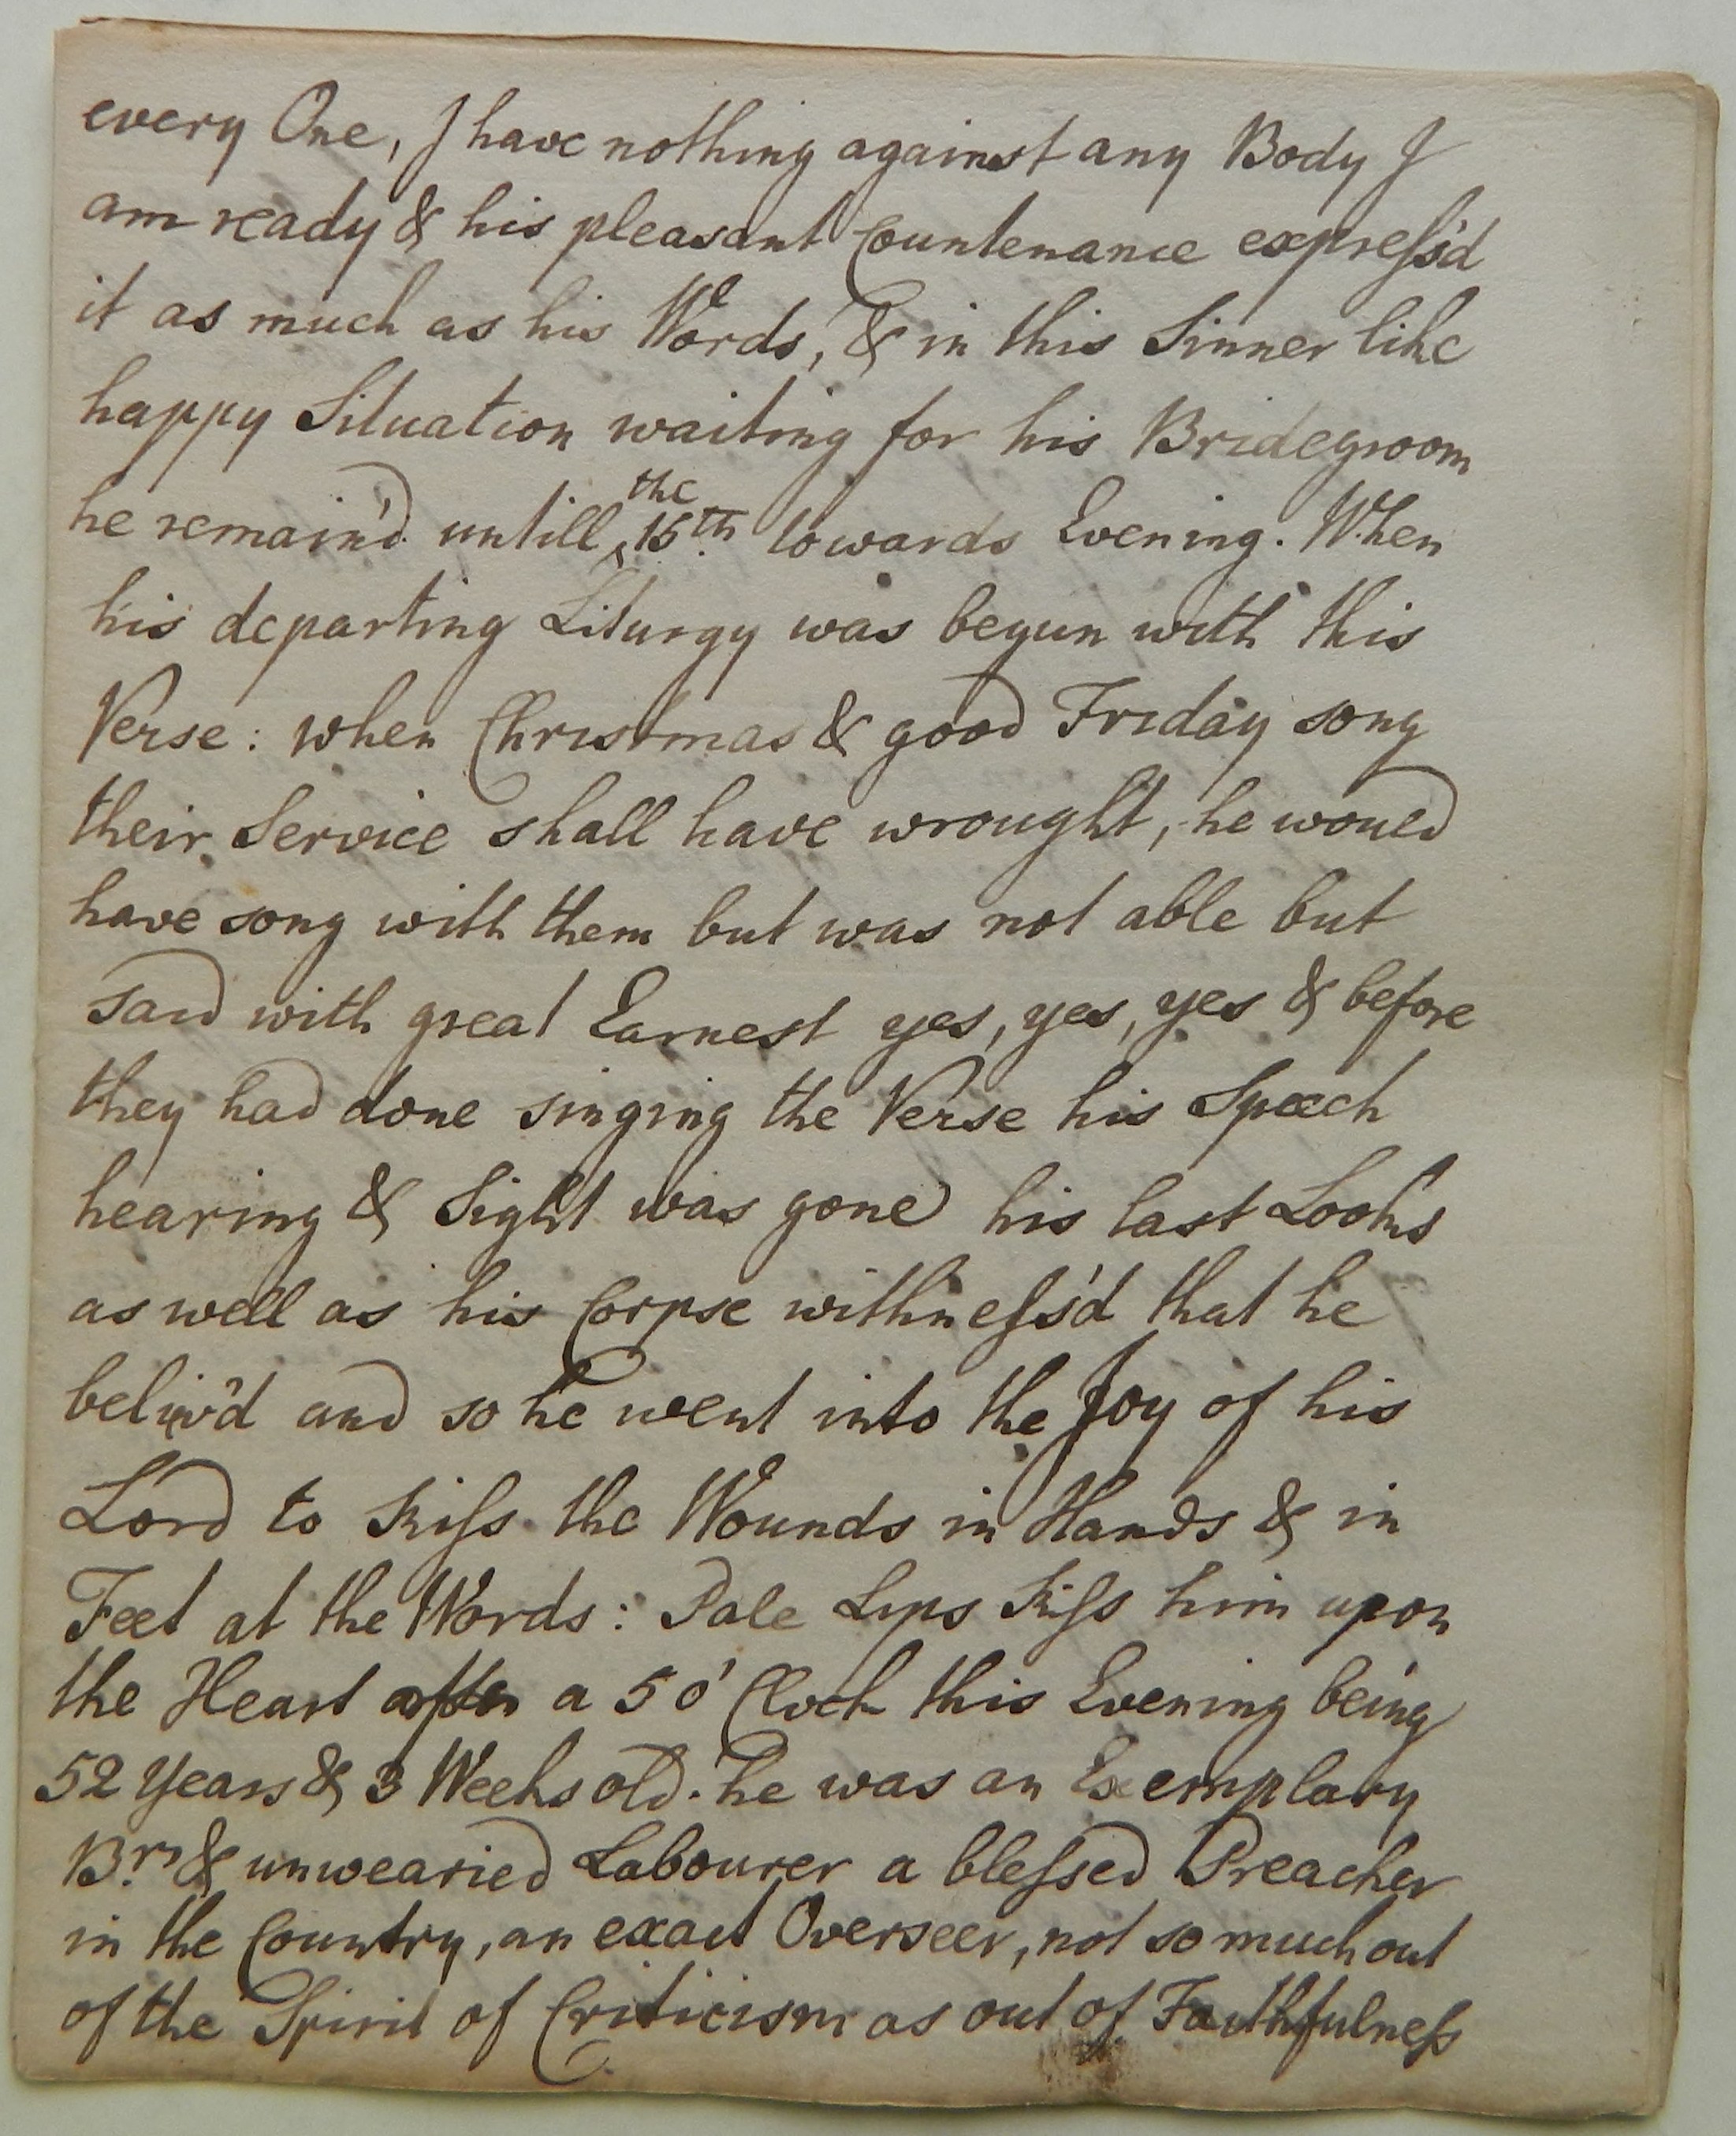 every One, I have nothing against any Body I
am ready & his pleasant Countenance expreſs'd
it as much as his Words, & in this Sinner like
happy Situation waiting for his Bridegroom
he remain'd untill the 15th towards Evening. When
his departing Liturgy was begun with this
Verse: when Christmas & good Friday song
their Service shall have wrought, he would
have song with them but was not able but
said with great Earnest yes, yes, yes & before
they had done singing the Verse his Speech
hearing & Sight was gone his last Looks
as well as his Corpse withneſs'd that he
beliv'd and so he went into the Joy of his
Lord to Kiſs the Wounds in Hands & in
Feet at the Words: Pale Lips Kiſs him upon
the Heart after a 5 o' Clock this Evening being
52 Years & 3 Weeks old. he was an Exemplary
Br. & unwearied Labourer a bleſsed Preacher
in the Country, an exact Overseer, not so much out
of the Spirit of Criticism as out of Faithfulneſs